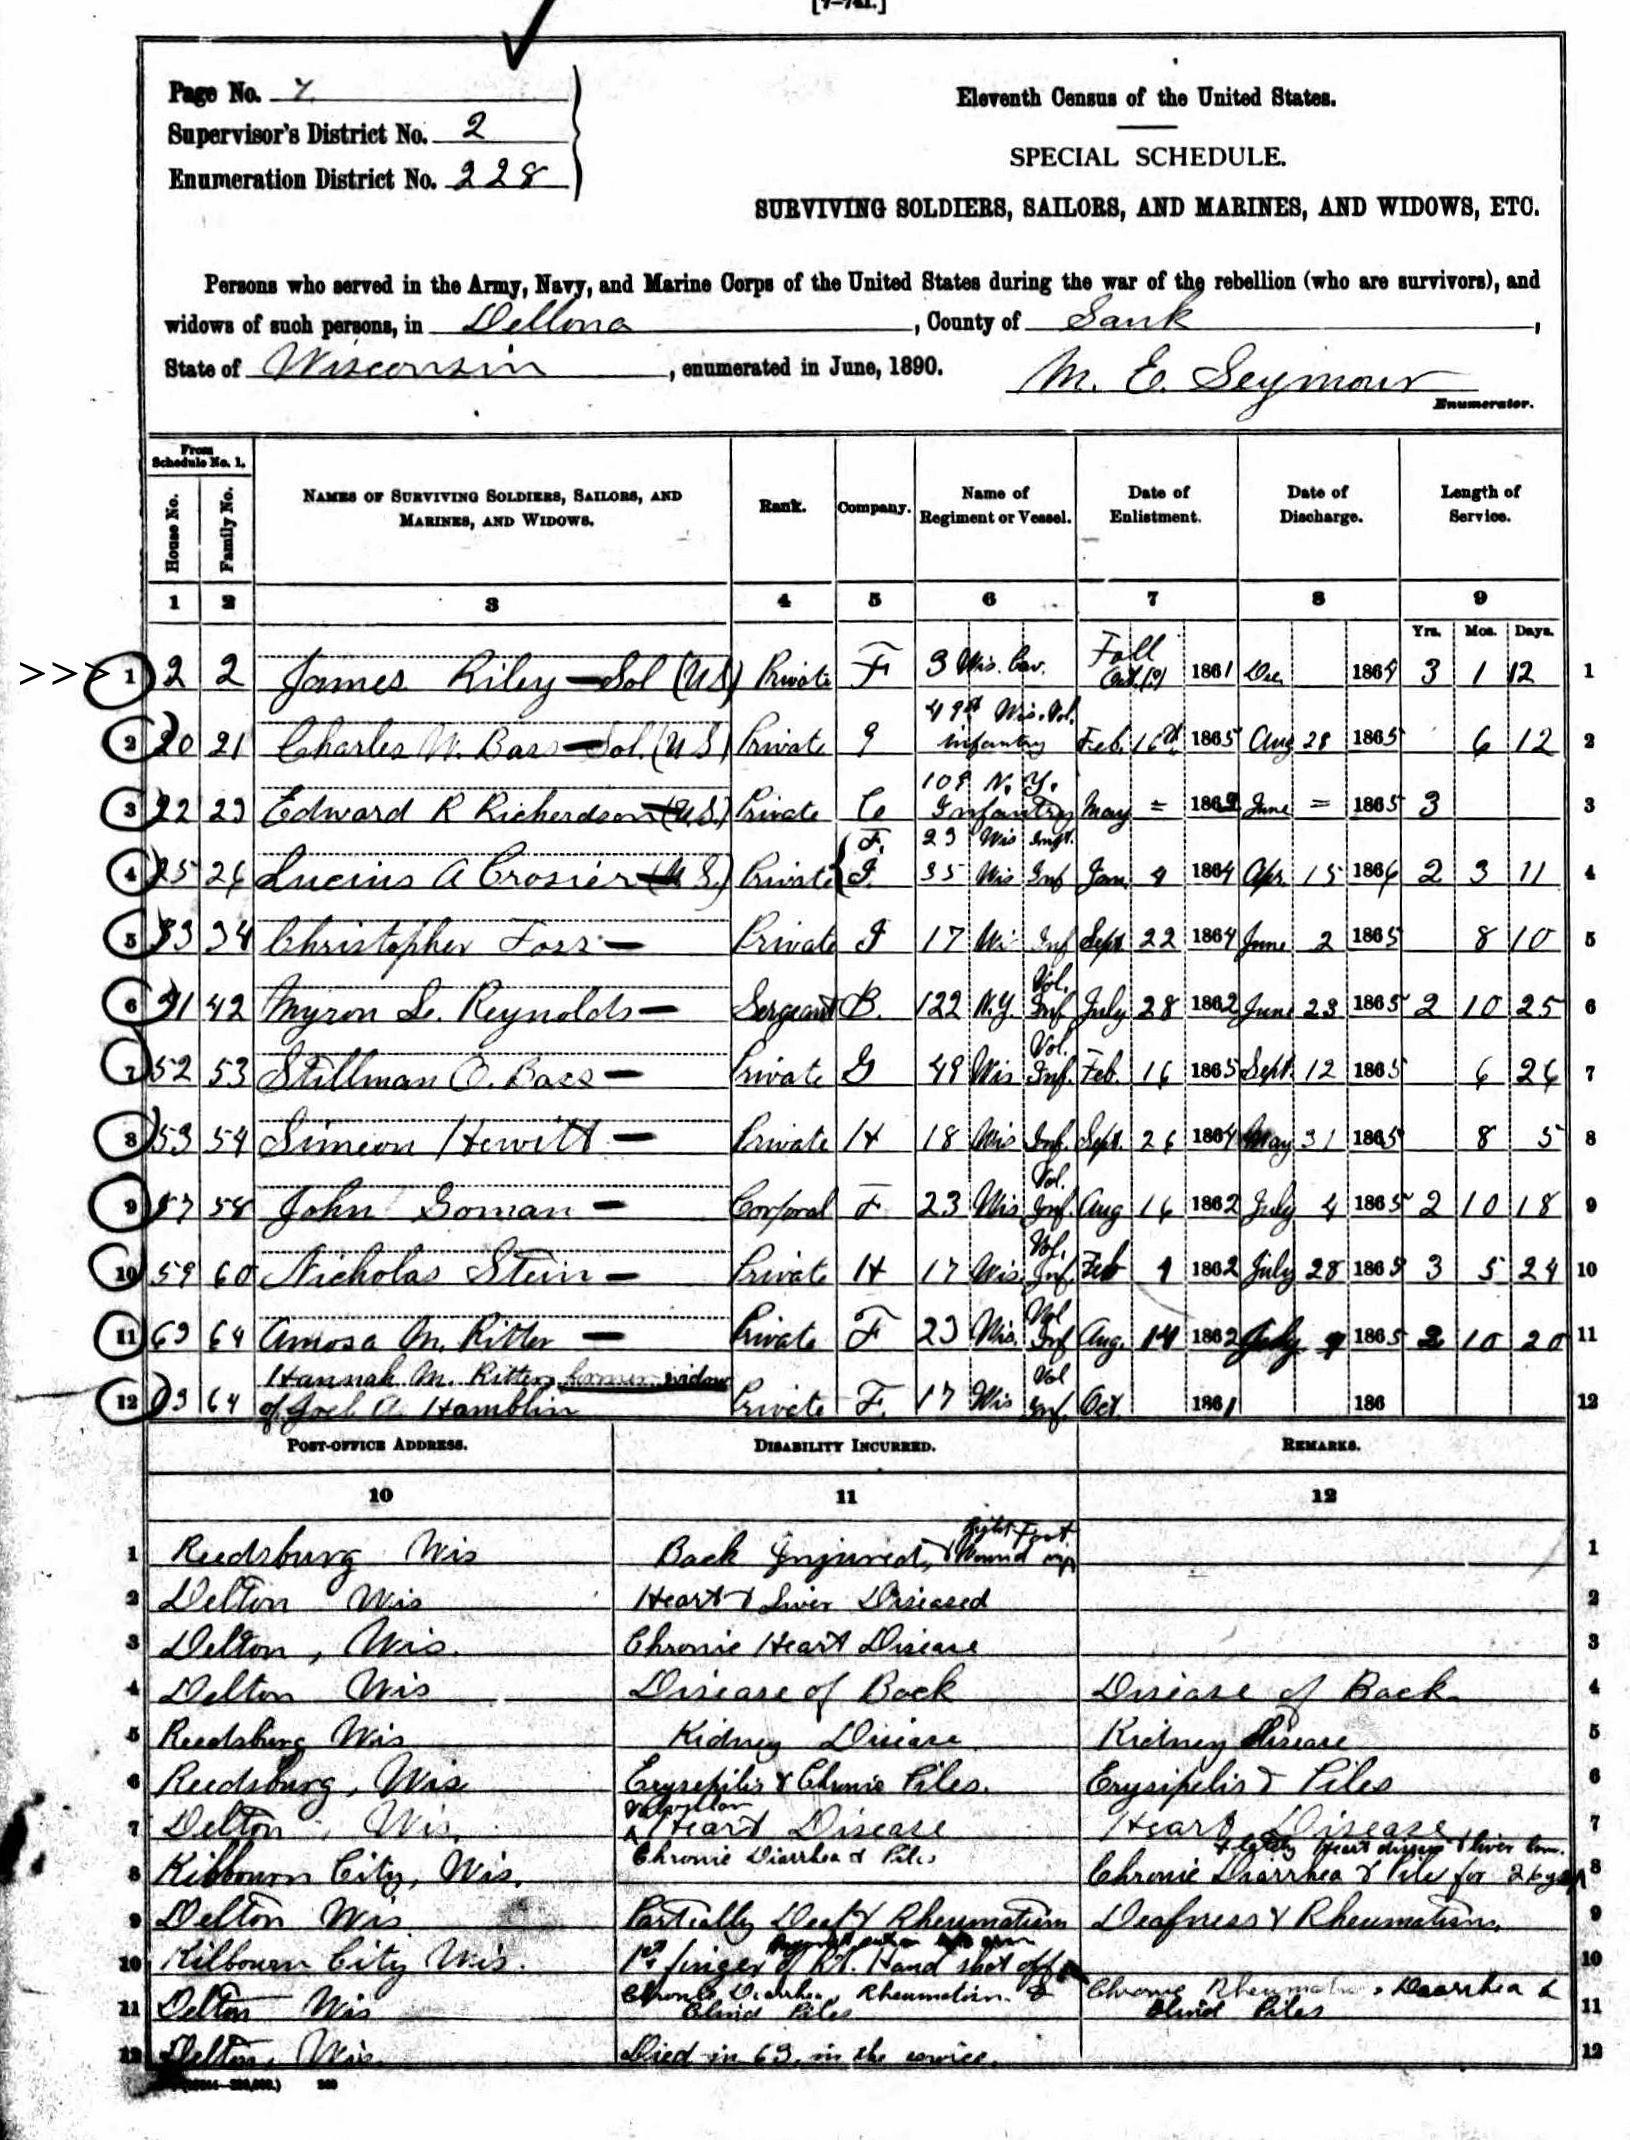 Page No. 7
Supervisor's District No. 2
Enumeration District No. 228
Eleventh Census of the United States.
SPECIAL SCHEDULE.
SURVIVING SOLDIERS, SAILORS, AND MARINES, AND WIDOWS, ETC.
Persons who served in the Army, Navy, and Marine Corps of the United States during the war of the rebellion (who are survivors), and
widows of such persons, in Dellona, County of Sauk,
State of Wisconsin, enumerated in June, 1890. M. E. Seymour
Enumerator.
From Schedule No. 1.
House No. Family No. NAMES OF SURVIVING SOLDIERS, SAILORS, AND MARINES, AND WIDOWS. Rank. Company. Name of Regiment or Vessel. Date of Enlistment. Date of Discharge. Length of Service.
1 2 3 4 5 6 7 8 9
Yrs. Mos. Days.
>>> 1 2 2 James Riley — Sol (US) Private F 3 Wis. Cav. Fall Oct. (?) 1861 Dec 1864 3 1 12 1
2 20 21 Charles W. Bass — Sol. (US) Private G 49th Wis. Vol. Infantry Feb. 16th 1865 Aug 28 1865 6 12 2
3 22 23 Edward R Richerdson (U.S.) Private C 109 N. Y. Infantry May = 1862 June = 1865 3 3
4 25 26 Lucius A Crosier (U S.) Private F. I. 23 Wis Inft. 35 Wis Inf Jan. 4 1864 Apr. 15 1866 2 3 11 4
5 33 34 Christopher Foss — Private I 17 Wi Inf Sept 22 1864 June 2 1865 8 10 5
6 41 42 Myron L. Reynolds — Sergeant B. 122 N.Y. Vol. Inf July 28 1862 June 23 1865 2 10 25 6
7 52 53 Stillman O. Bass — Private G 49 Wis Vol. Inf. Feb. 16 1865 Sept. 12 1865 6 26 7
8 53 54 Simeon Hewitt — Private H 18 Wis Inf. Sept. 26 1864 May 31 1865 8 5 8
9 57 58 John Goman — Corporal F 23 Wis Vol. Inf. Aug 16 1862 July 4 1865 2 10 18 9
10 59 60 Nicholas Stein — Private H 17 Wis Vol. Inf. Feb 4 1862 July 28 1865 3 5 24 10
11 63 64 Amosa M. Ritter — Private F 23 Wis. Vol Inf Aug. 14 1862 July 4 1865 2 10 20 11
12 63 64 Hannah M. Ritter, former widow of Joel A. Hamblin Private F. 17 Wis Vol Inf. Oct. 1861 186 12
POST-OFFICE ADDRESS. DISABILITY INCURRED. REMARKS.
10 11 12
1 Reedsburg Wis Back Injured, & Right Foot Wound 1
2 Delton Wis Heart & Liver Diseased 2
3 Delton, Wis. Chronic Heart Disease 3
4 Delton Wis Disease of Back Disease of Back 4
5 Reedsburg Wis Kidney Disease Kidney Disease 5
6 Reedsburg, Wis Erysepilis & Chronic Piles. Erysipelis & Piles 6
7 Delton, Wis. Valvular Heart Disease Heart Disease 7
8 Kilbourn City, Wis. Chronic Diarrhea & Piles Chronic Diarrhea & Piles for 26 yrs & lately Heart disease & liver Com. 8
9 Delton Wis Partially Deaf & Rheumatism Deafness & Rheumatism. 9
10 Kilbourn City Wis. 1st finger of Rt. Hand shot off 10
11 Delton Wis Chronic Diarrhea, Rheumatism & Blind Piles Chronic Rheumatic, Diarrhea & Blind Piles 11
12 Delton, Wis. Died in 63, in the service. 12